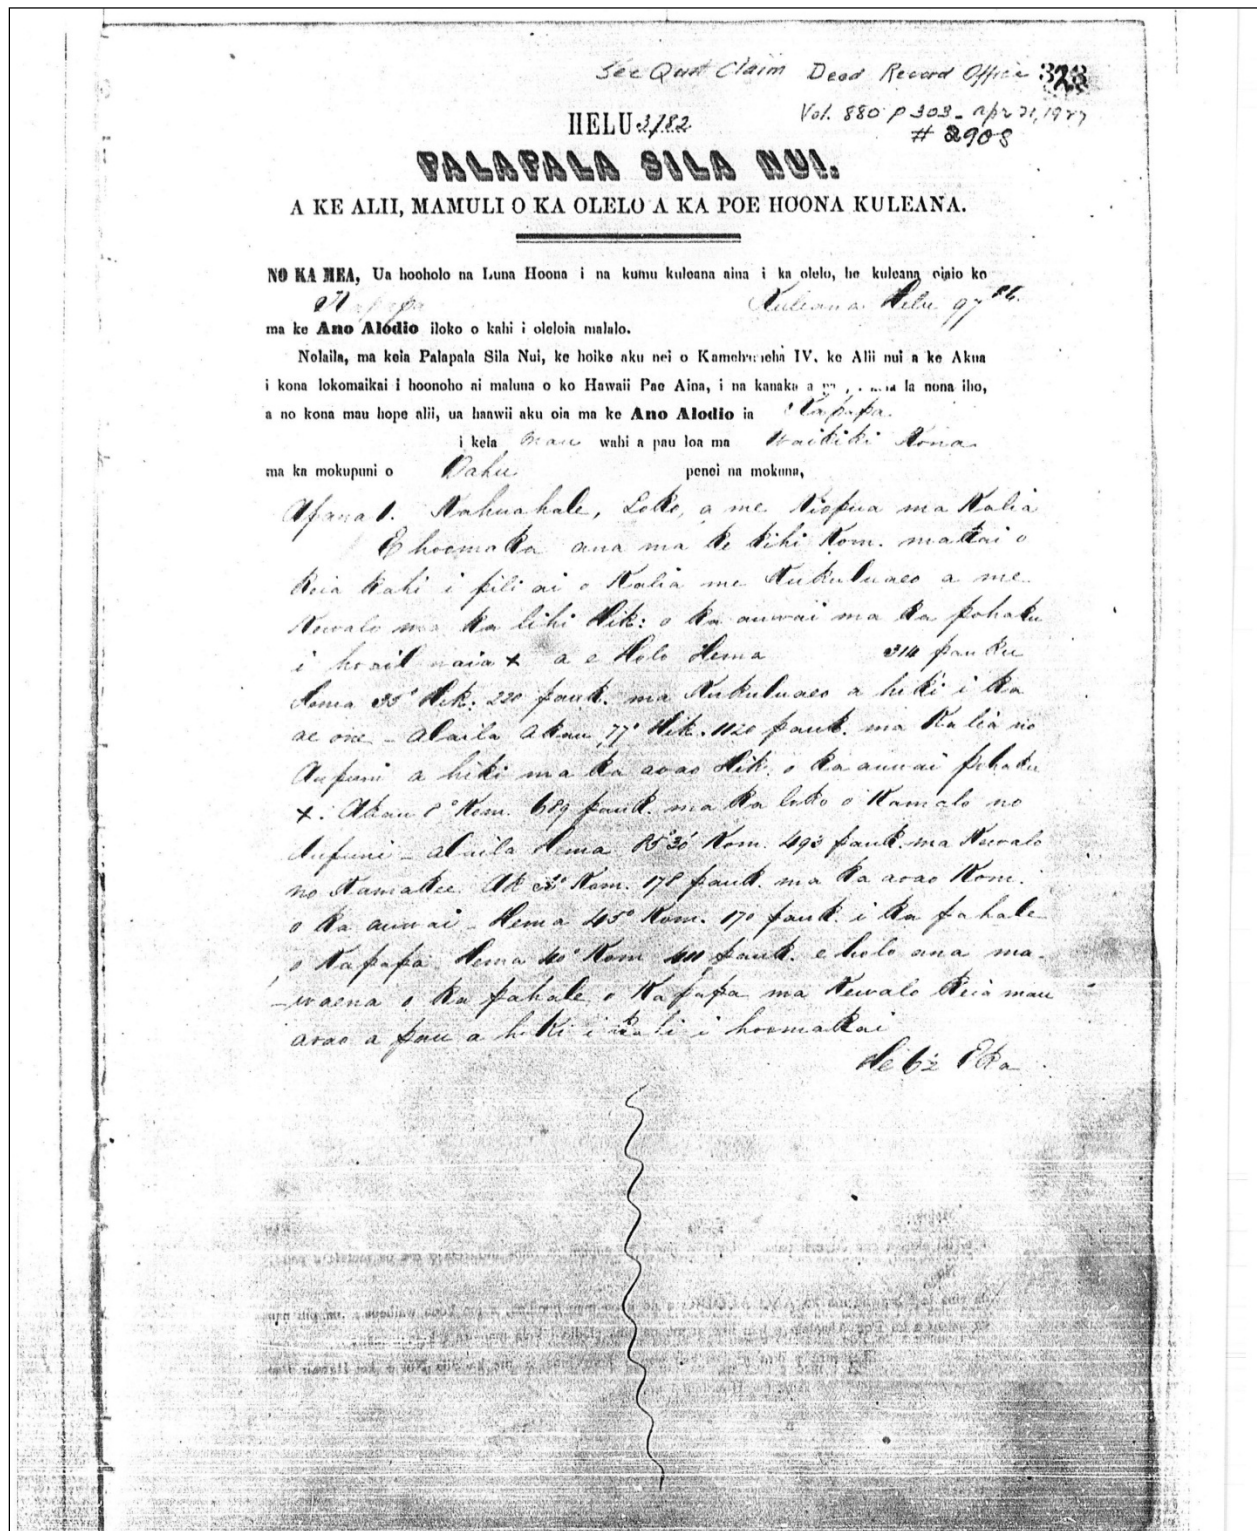 See Quit Claim Deed Record Office 323
Vol. 880 p 303 - Apr 21, 19
# 2908
HELU 3182
PALAPALA SILA NUI.
A KE ALII, MAMULI O KA OLELO A KA POE HOONA KULEANA.
NO KA MEA, Ua hooholo na Luna Hoona i na kumu kuleana aina i ka olelo, he kuleana oiaio ko
Kapapa Kuleana Helu 97
ma ke Ano Alodio iloko o kahi i oleloia malalo.
Nolaila, ma keia Palapala Sila Nui, ke hoike aku nei o Kamehameha IV. ke Alii nui a ke Akua
i kona lokomaikai i hoonoho ai maluna o ko Hawaii Pae Aina, i na kanaka a la nona iho,
a no kona mau hope alii, ua haawii aku oia ma ke Ano Alodio ia Kapapa
i kela mau wahi a pau loa ma Waikiki Kona
ma ka mokupuni o Oahu penei na mokuna,
Apana 1. Kahuahale, Loko, a me Kiopua ma Kalia
E hoomaka ana ma ke kihi Kom. makai o
keia kahi i pili ai o Kalia me Kukuluaeo a me
Kewalo ma ka lihi Hik: o ka auwai ma ka pohaku
i X a e Holo Hema 314 pauku
Hema 35° Hik: 220 pauk. ma Kukuluaeo a hiki i ka
ae one - Alaila Akau 77° Hik. 1120 pauk. ma Kalia no
Aupuni a hiki ma ka aoao Hik. o ka auwai pohaku
X. Akau 8° Kom. 689 pauk. ma ka loko o Kamalo no
Aupuni - Alaila Hema 85°30' Kom. 493 pauk. ma Kewalo
no Kamakee. Ak Kom. 178 pauk. ma ka aoao Kom.
o ka auwai - Hema 45° Kom. 170 pauk. i ka pahale
o Kapapa Hema 40° Kom pauk. e holo ana ma-
-waena o ka pahale o Kapapa ma Kewalo keia mau
aoao a pau a hiki i kahi i hoomakai
Eka